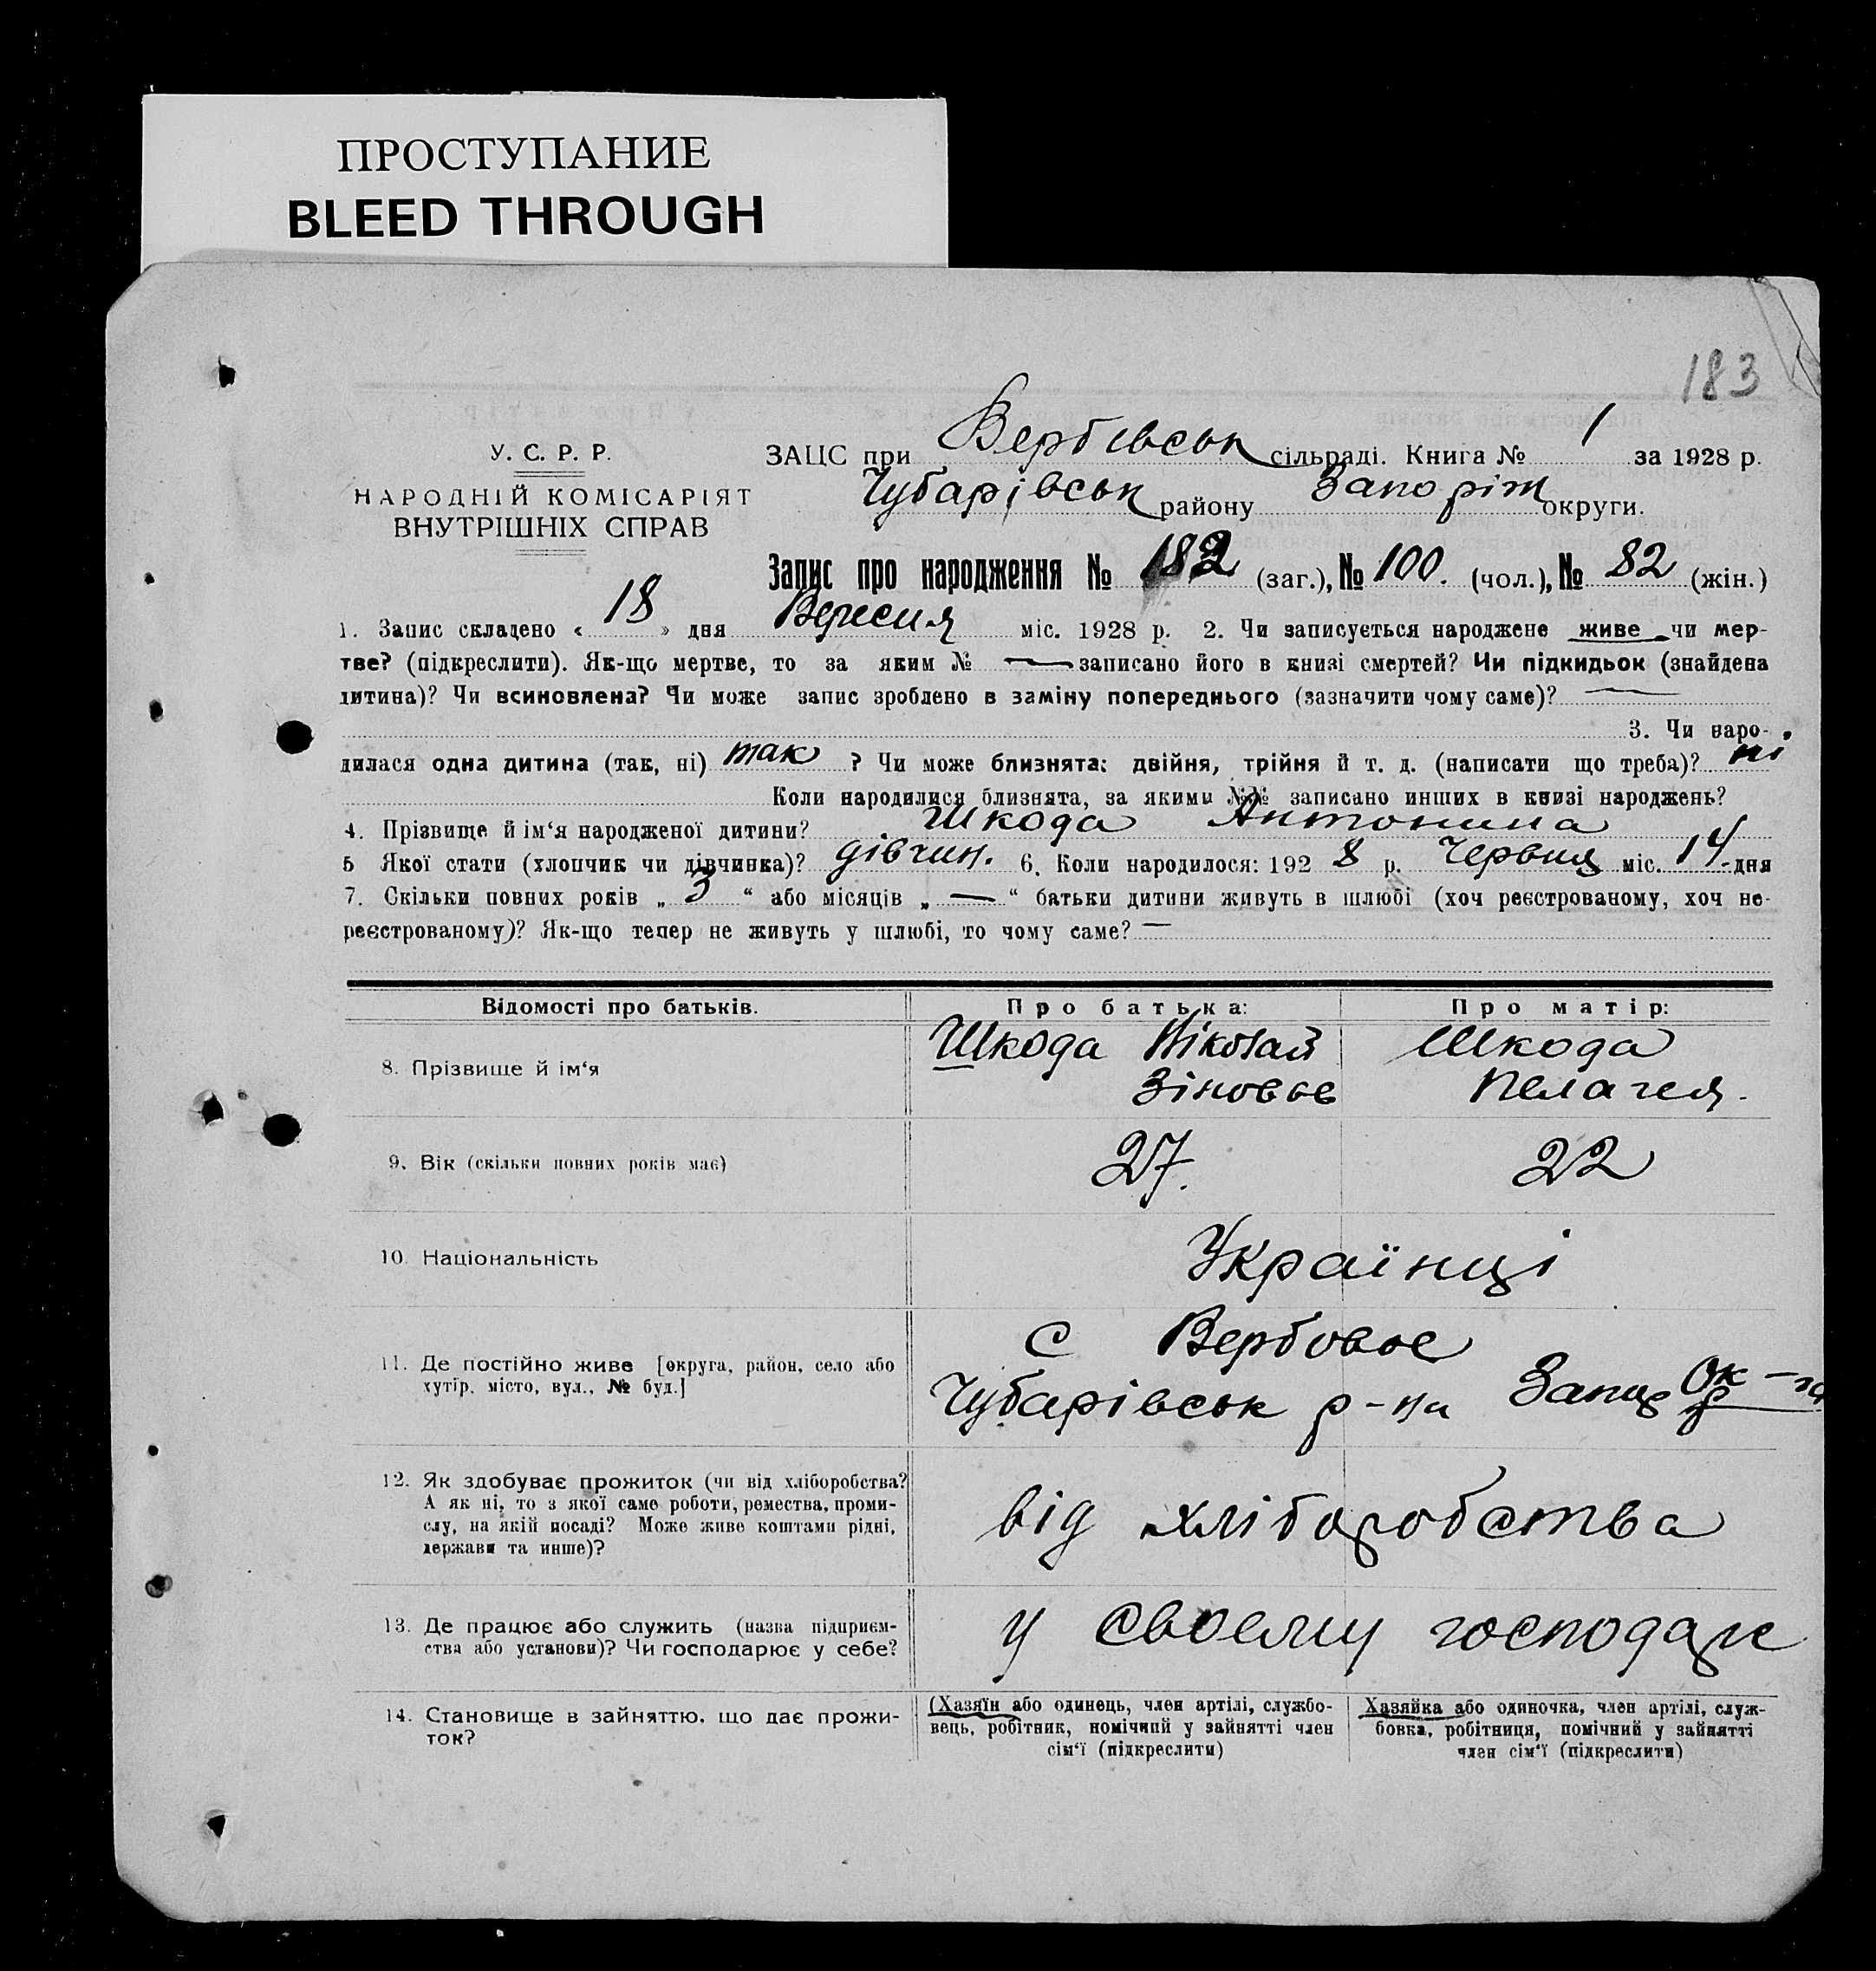 ПРОСТУПАНИЕ
BLEED THROUGH
183
У. С. Р. Р.
НАРОДНІЙ КОМІСАРІЯТ
ВНУТРІШНІХ СПРАВ
ЗАЦС при Вербівськ сільраді. Книга № 1 за 1928 р.
Чубарівськ району Запоріж округи.
Запис про народження № 182 (заг.), № 100. (чол.), № 82 (жін.)
1. Запис складено « 18 » дня Вересня міс. 1928 р. 2. Чи записується народжене живе чи мер-
тве? (підкреслити). Як-що мертве, то за яким № — записано його в книзі смертей? Чи підкидьок (знайдена
дитина)? Чи всиновлена? Чи може запис зроблено в заміну попереднього (зазначити чому саме)? —
3. Чи наро-
дилася одна дитина (так, ні) так ? Чи може близнята: двійня, трійня й т. д. (написати що треба)? ні
Коли народилися близнята, за якими №№ записано инших в книзі народжень?
4. Прізвище й ім‘я народженої дитини? Шкода Антонина
5 Якої стати (хлопчик чи дівчинка)? дівчин. 6. Коли народилося: 192 8 р. Червня міс. 14 дня
7. Скільки повних років „ 3 “ або місяців „ — “ батьки дитини живуть в шлюбі (хоч реєстрованому, хоч не-
реєстрованому)? Як-що тепер не живуть у шлюбі, то чому саме? —
Відомості про батьків. Про батька: Про матір:
8. Прізвище й ім‘я Шкода Ніколай Шкода
Зіновьє Пелагея.
9. Вік (скільки повних років має) 27. 22
10. Національність Українці
11. Де постійно живе [округа, район, село або
хутір, місто, вул., № буд.]
С Вербовое
Чубарівськ р-на Запор Ок-га
12. Як здобуває прожиток (чи від хліборобства?
А як ні, то з якої саме роботи, ремества, проми-
слу, на якій посаді? Може живе коштами рідні,
держави та инше)?
від хліборобства
13. Де працює або служить (назва підприєм-
ства або установи)? Чи господарює у себе?
у своему господар
14. Становище в зайняттю, що дає прожи-
ток?
(Хазяїн або одинець, член артілі, службо-
вець, робітник, помічний у зайнятті член
сім‘ї (підкреслити)
Хазяйка або одиночка, член артілі, служ-
бовка, робітниця, помічний у зайнятті
член сім‘ї (підкреслити)